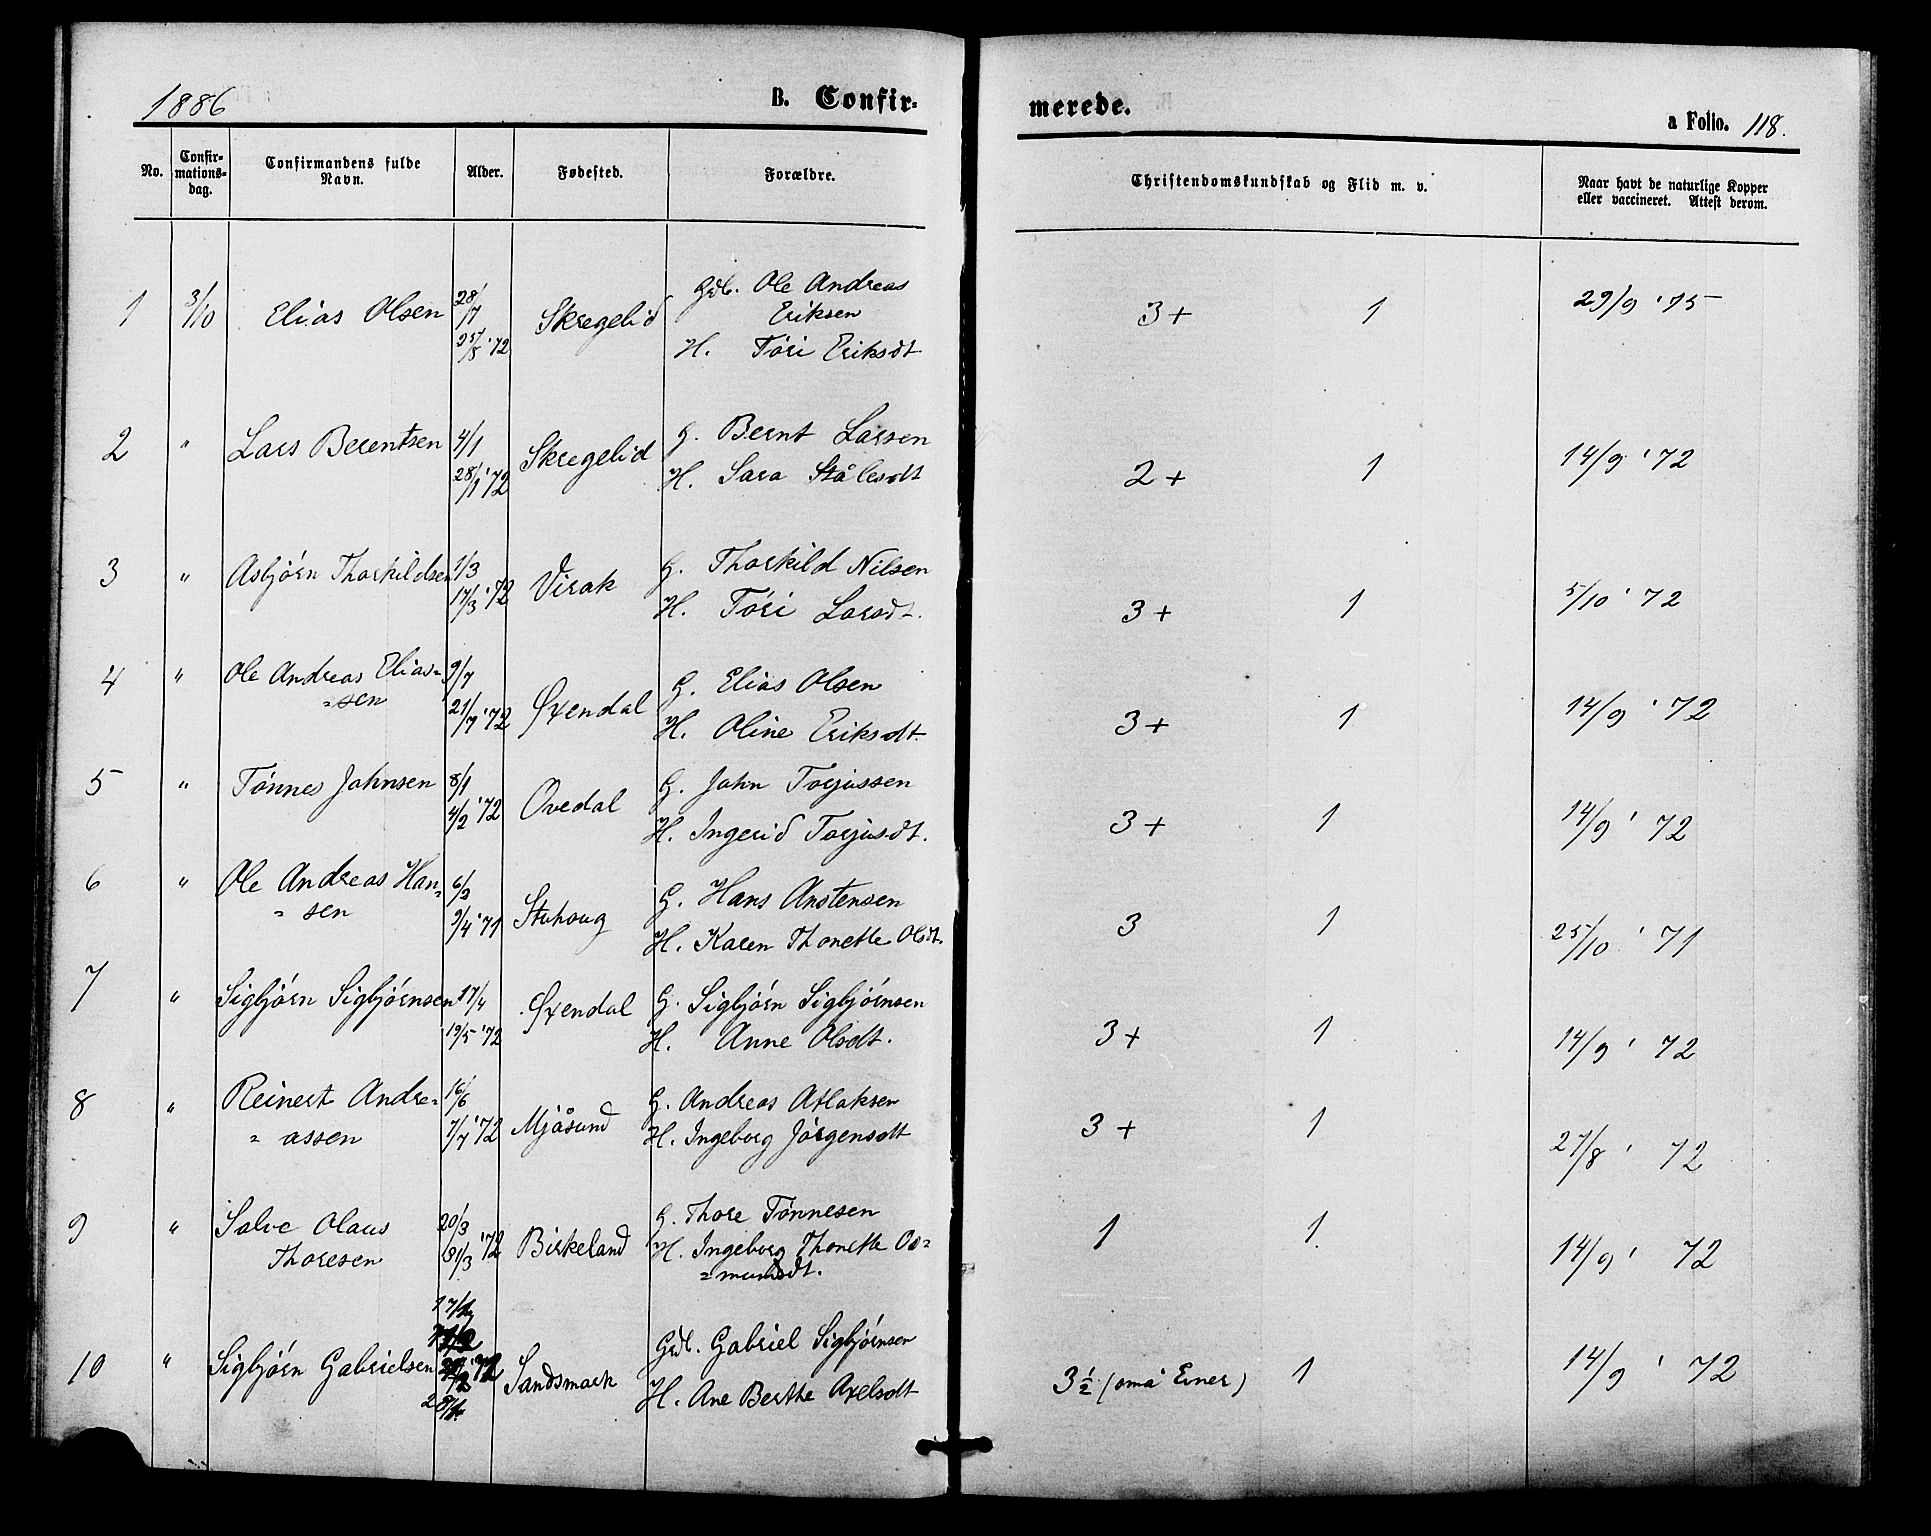 1886
B. Confir-
merede.
a Folio. 118.
No.
Confir-
mations-
dag.
Confirmandens fulde
Navn.
Alder.
Fødested.
Forældre.
Christendomskundskab og Flid m. v.
Naar havt de naturlige Kopper
eller vaccineret. Attest derom.
1 3/10 Elias Olsen 28/7 25/8 '72 Skregelid
Gdb. Ole Andreas
Eriksen
H. Tøri Eriksdt.
3+ 1 29/9 '75
2 " Lars Berentsen 4/1 28/1 '72 Skregelid
G. Bernt Larsen
H. Sara Stålesdt
2+ 1 14/9 '72
3 " Asbjørn Thorkildsen 1/3 17/3 '72 Virak
G. Thorkild Nilsen
H. Tøri Larsdt.
3+ 1 5/10 '72
4 " Ole Andreas Elias-
=sen 9/7 21/7 '72 Øxendal
G. Elias Olsen
H. Oline Eriksdt.
3+ 1 14/9 '72
5 " Tønnes Johnsen 8/1 4/2 '72 Ovedal
G. John Torjussen
H. Ingerid Torjusdt.
3+ 1 14/9 '72
6 " Ole Andreas Han=
= sen 6/2 9/4 '71 Stuhoug
G. Hans Anstensen
H. Karen Thonette Olsdt.
3 1 25/10 '71
7 " Sigbjørn Sigbjørnsen 17/4 19/5 '72 Øxendal
G. Sigbjørn Sigbjørnsen
H. Anne Olsdt.
3+ 1 14/9 '72
8 " Reinert Andre=
= assen 16/6 7/7 '72 Mjåsund
G. Andreas Atlaksen
H. Ingeborg Jørgensdt
3+ 1 27/8 '72
9 " Salve Olaus
Thoresen 20/3 31/3 '72 Birkeland
G. Thore Tønnesen
H. Ingeborg Thonette Os=
=mundsdt.
1 1 14/9 '72
10 " Sigbjørn Gabrielsen Sandsmark
Gdb. Gabriel Sigbjørnsen
H. Ane Berthe Axelsdt
3 1/2 (små Evner) 1 14/9 '72